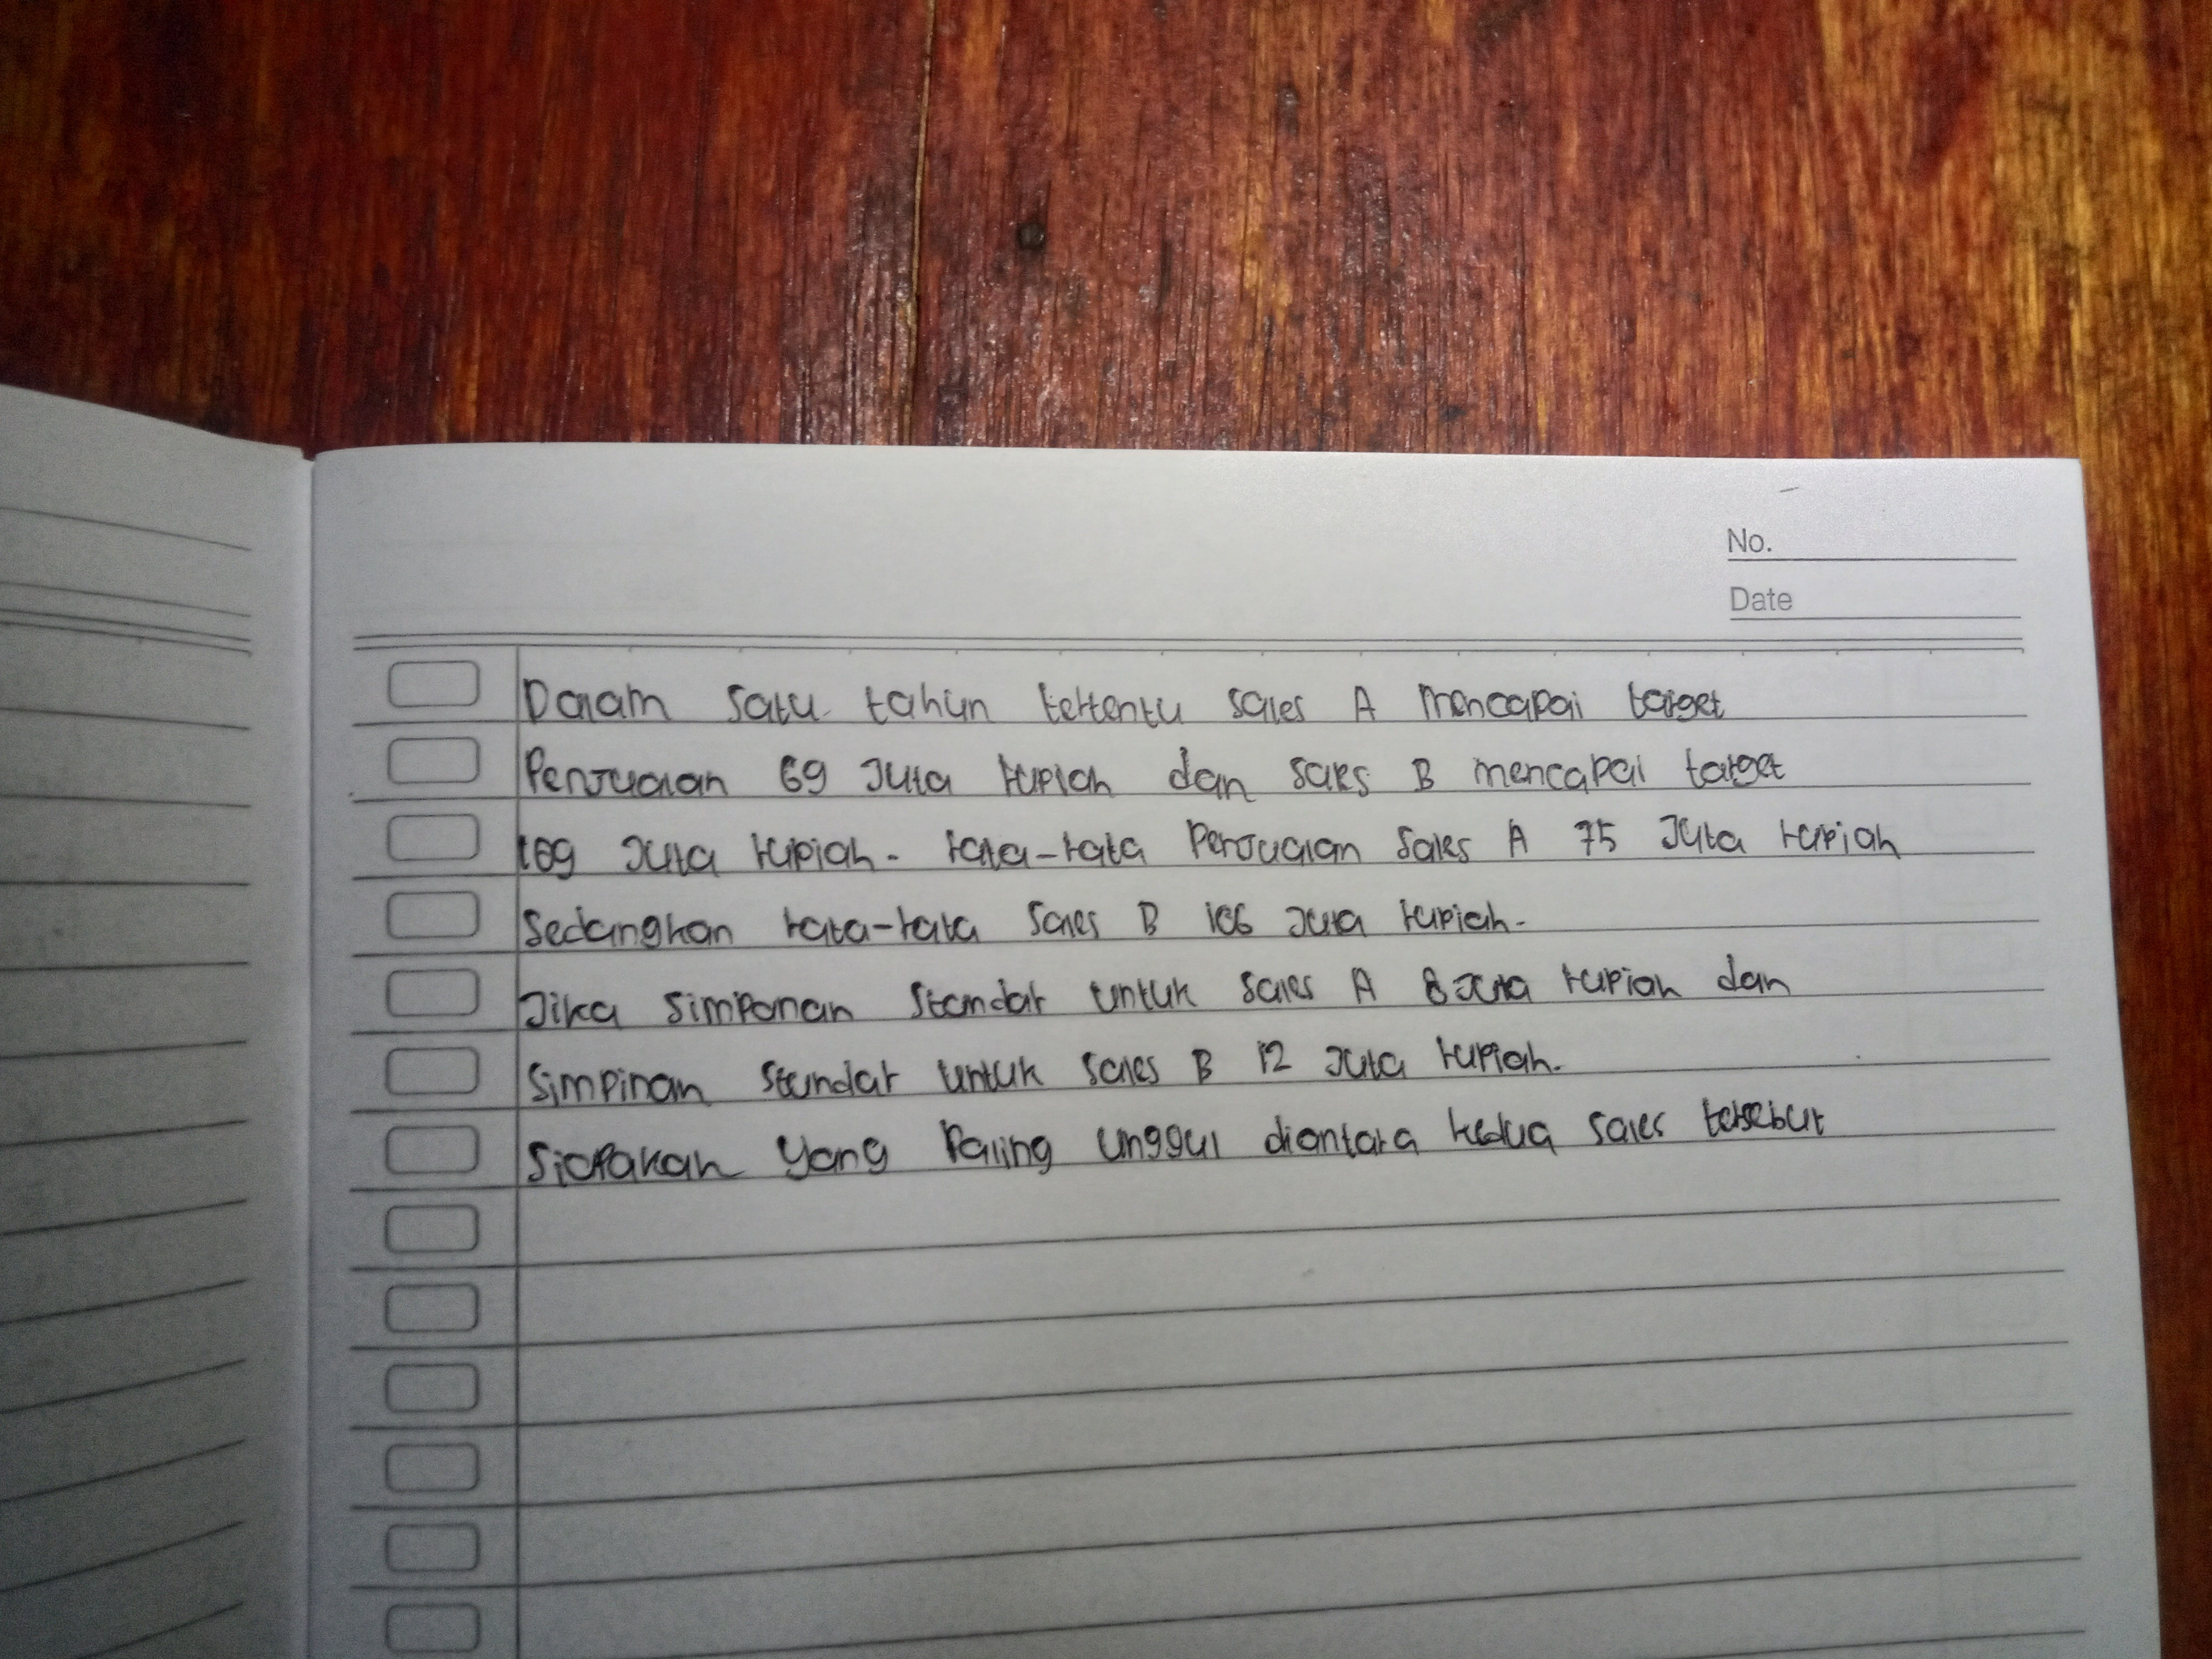 No.
Date
Dalam satu tahun tertentu sales A mencapai target
Penjualan 69 Juta rupiah dan sales B mencapai target
109 Juta rupiah. rata-rata Penjualan Sales A 75 Juta rupiah
Sedangkan rata-rata Sales B 106 Juta rupiah.
Jika simpanan Standar untuk sales A 8 Juta rupiah dan
Simpinan Standar untuk sales B 12 Juta rupiah.
Siapakah yang Paling unggul diantara kedua sales tersebut